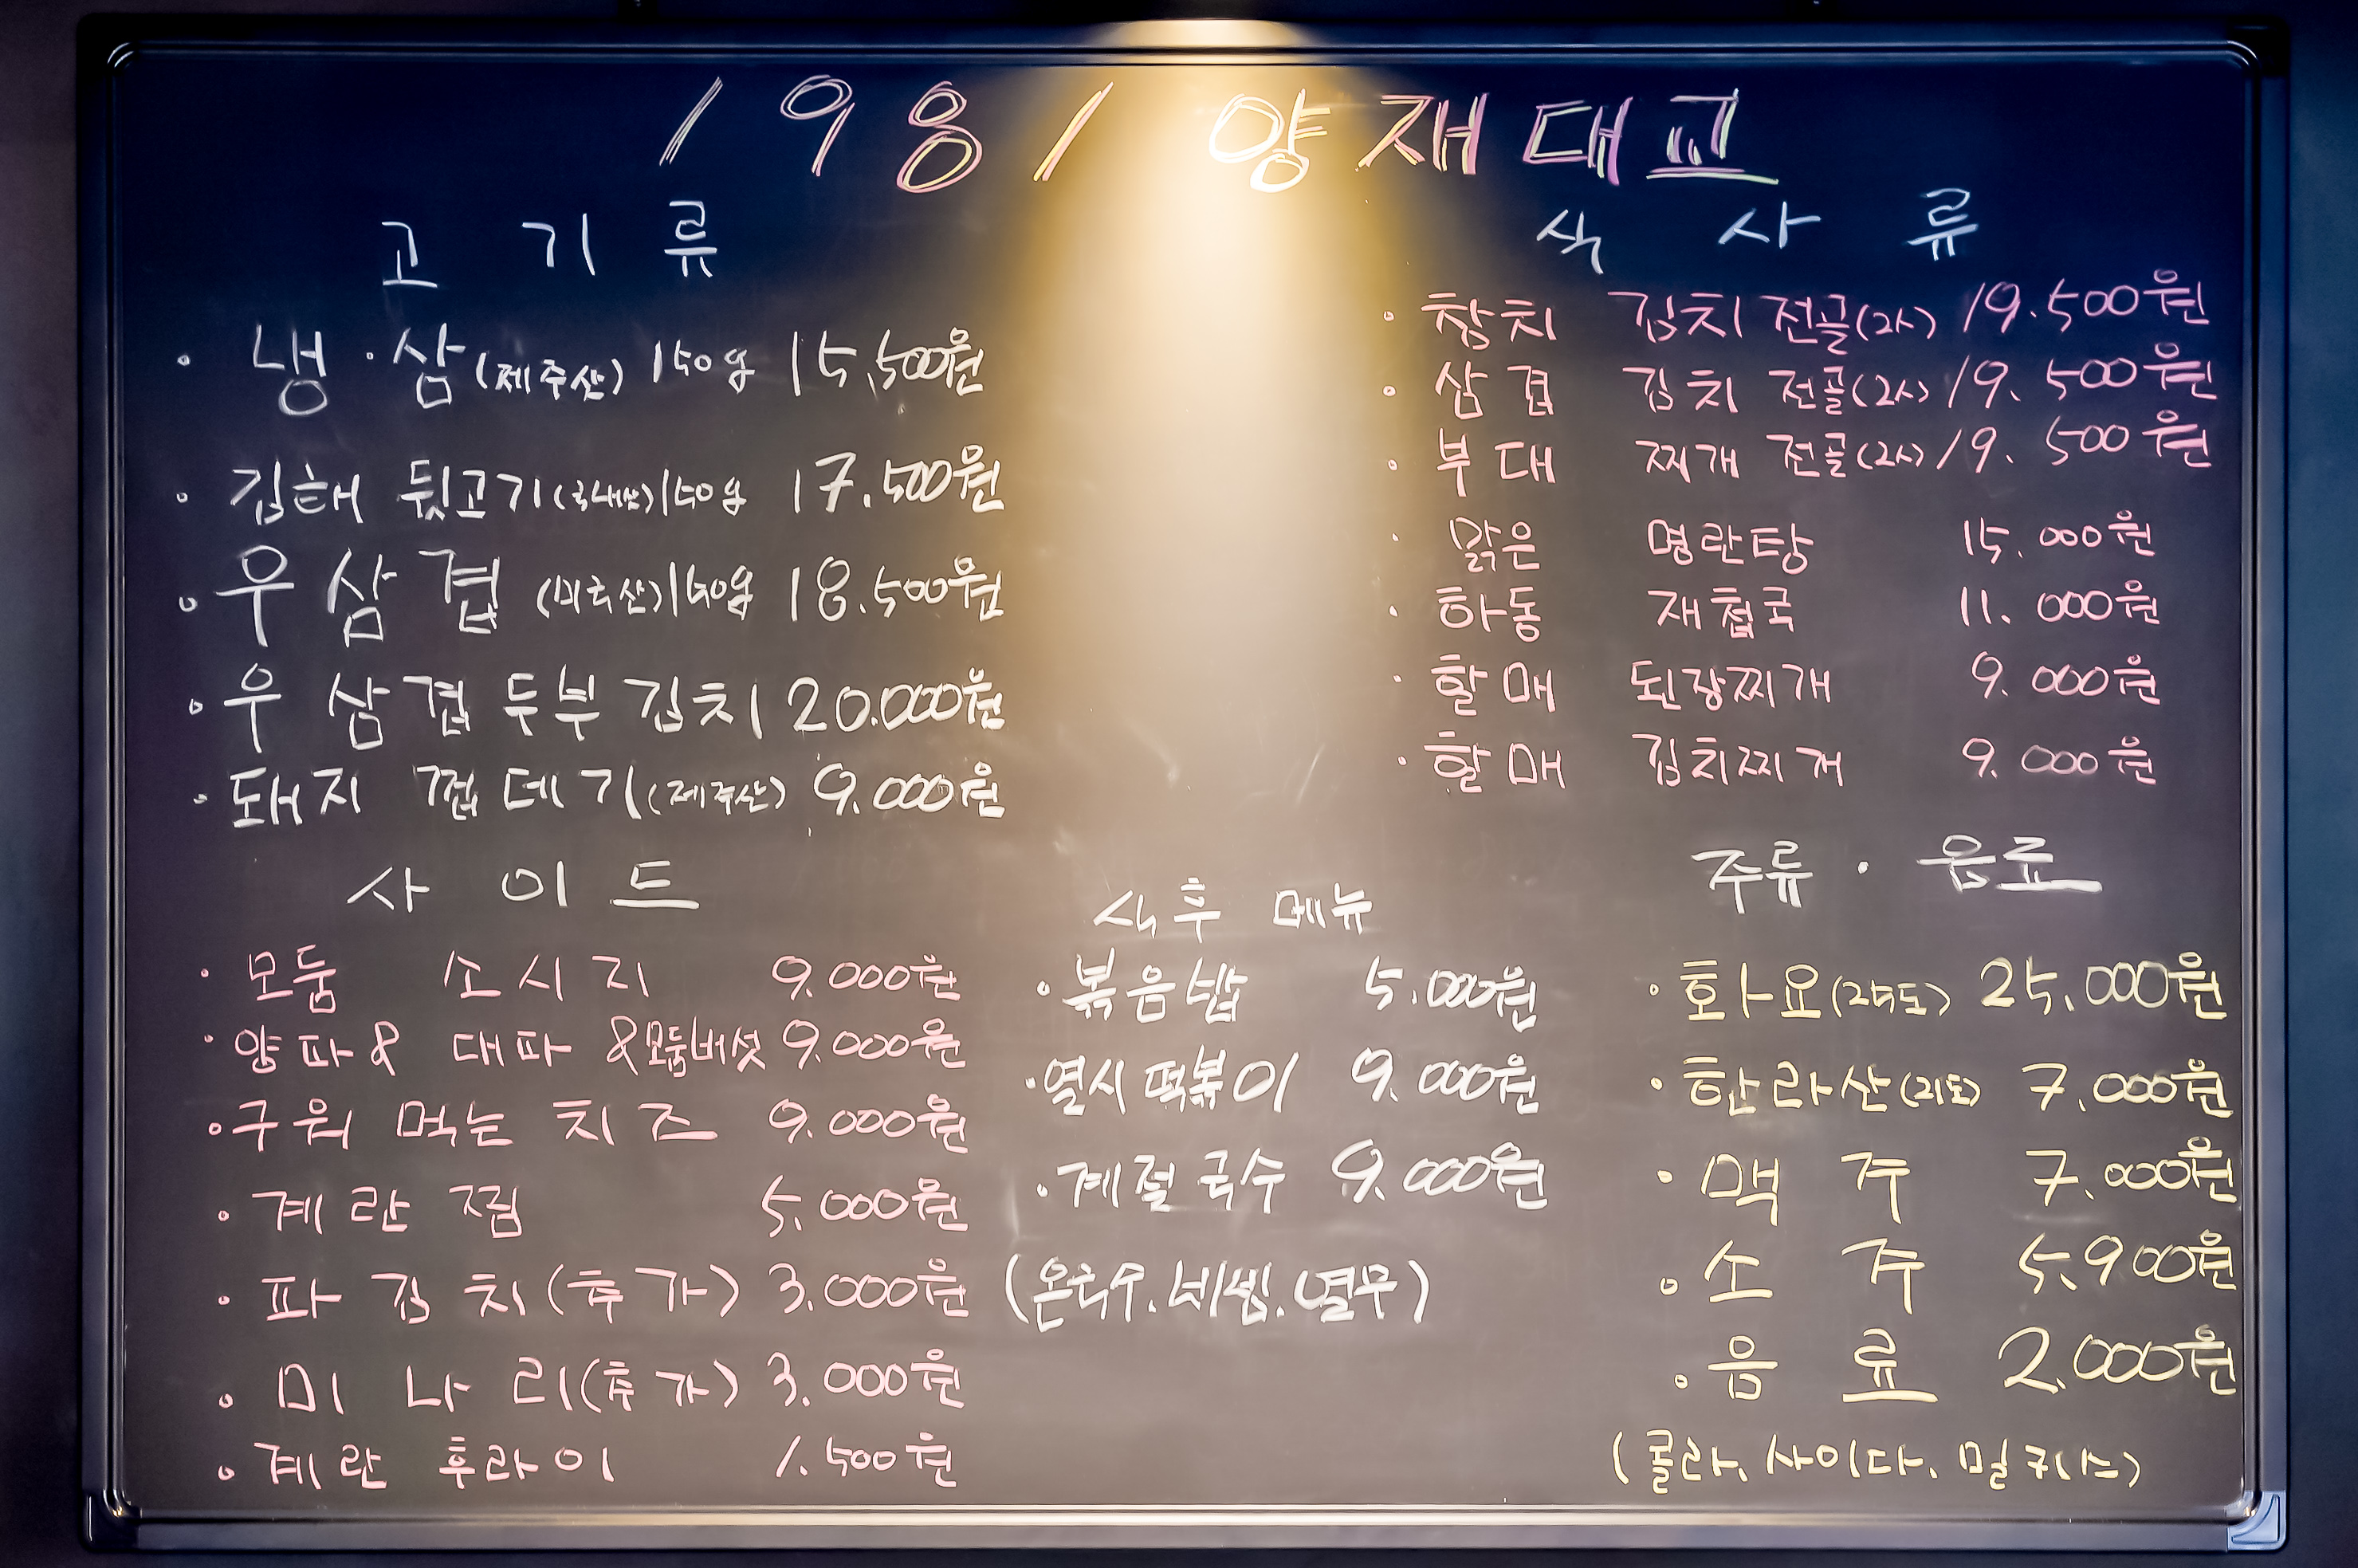 1981 양재대교
고기류
· 냉·삼(제주산) 150g 15,500원
· 김해 뒷고기(국내산)150g 17.500원
· 우삼겹 (미국산)150g 18.500원
· 우삼겹두부김치 20.000원
· 돼지 껍데기(제주산) 9.000원
식사류
· 참치 김치전골(2人) 19.500원
· 삼겹 김치 전골(2人) 19.500원
· 부대 찌개 전골(2人) 19.500원
· 맑은 명란탕 15.000원
· 하동 재첩국 11.000원
· 할매 된장찌개 9.000원
· 할매 김치찌개 9.000원
사이드
· 모둠 소시지 9.000원
· 양파& 대파 &모둠버섯 9.000원
· 구워 먹는 치즈 9.000원
· 계란찜 5.000원
· 파김치(추가) 3.000원
· 미나리(추가) 3.000원
· 계란 후라이 1.500원
식후 메뉴
· 볶음밥 5.000원
· 열시떡볶이 9.000원
· 계절국수 9.000원
(온국수.비빔.열무)
주류 · 음료
· 화요(25도) 25.000원
· 한라산(21도) 7.000원
· 맥주 7.000원
· 소주 5.900원
· 음료 2.000원
(콜라, 사이다, 밀키스)